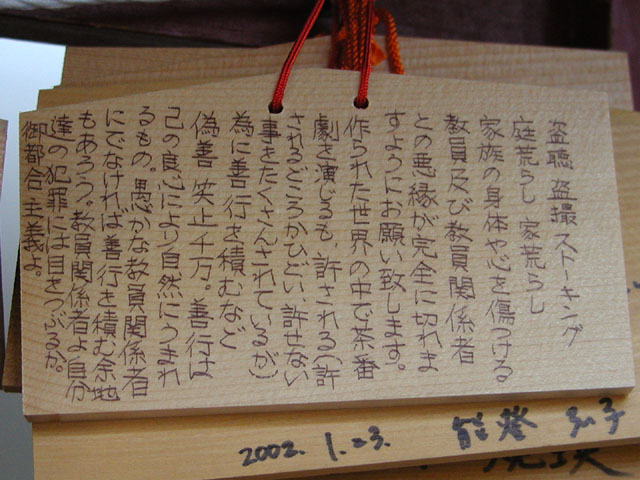 盗聴 盗撮 ストーキング
庭荒らし 家荒らし
家族の身体や心を傷つける
教員及び教員関係者
との悪縁が完全に切れま
すようにお願い致します。
作られた世界の中で茶番
劇を演じるも、許される(許
されるどころかひどい、許せない
事をたくさんされているが)
為に善行を積むなど
偽善 笑止千万。善行は
己の良心により自然にうまれ
るもの。愚かな教員関係者
にでなければ善行を積む余地
もあろう。教員関係者よ自分
達の犯罪には目をつぶるか。
御都合主義よ
2002. 1.23. 能登